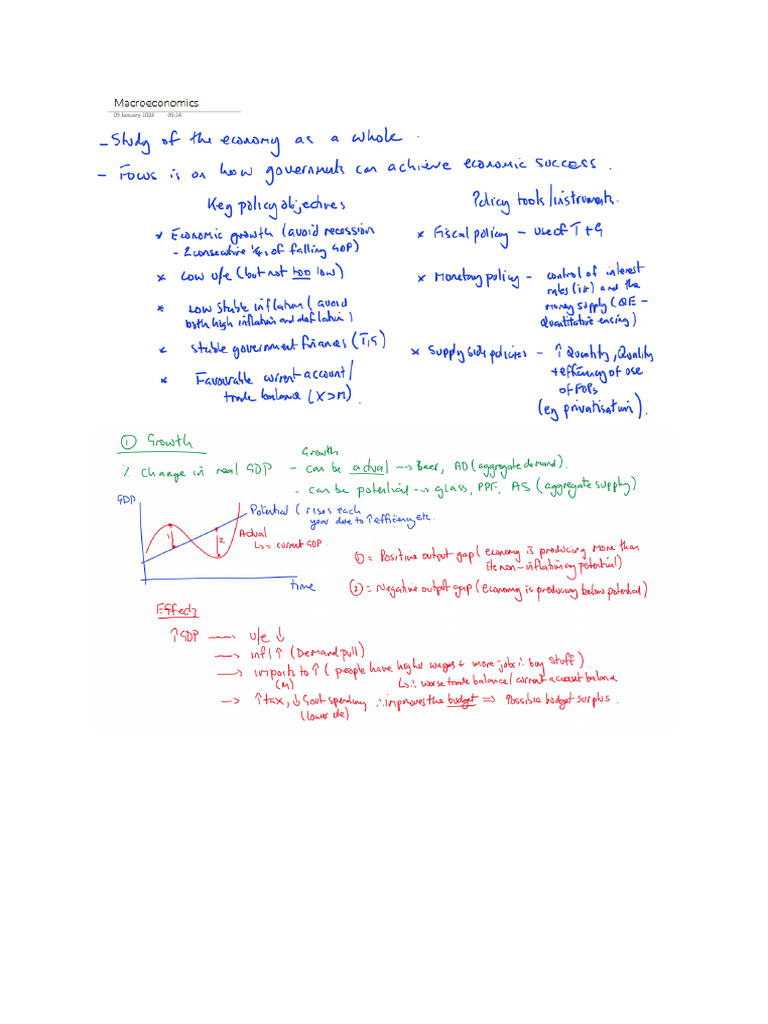 Macroeconomics
09 January 2024 09:24
- Study of the economy as a whole.
- Focus is on how governments can achieve economic success.
Key policy objectives
* Economic growth (avoid recession
- 2 consecutive 1/4s of falling GDP)
* Low u/e (but not too low)
* Low stable inflation (avoid
both high inflation and deflation)
* Stable government finances (T,G)
* Favourable current account/
trade balance (X>M).
Policy tools/instruments.
* Fiscal policy - use of T+G
* Monetary policy - control of interest
rates (ir) and the
money supply (QE -
Quantitative easing)
* Supply side policies - ↑ Quantity, Quality
+ efficiency of use
of FOPs
(eg privatisation).
① Growth
% Change in real GDP
Growth
- can be actual → Beer, AD (aggregate demand).
- can be potential → glass, PPF, AS (aggregate supply)
GDP
Potential (rises each
year due to ↑ efficiency etc.
Actual
↳ = current GDP
1
2
time
① = Positive output gap (economy is producing more than
its non-inflationary potential)
② = Negative output gap (economy is producing below potential)
Effects
↑GDP → u/e ↓
→ infl ↑ (Demand pull)
→ imports to ↑ (people have higher wages + more jobs ∴ buy stuff)
(M)
↳ ∴ worse trade balance/current account balance
→ ↑ tax, ↓ Govt spending ∴ improves the budget ⇒ Possible budget surplus.
(lower u/e)